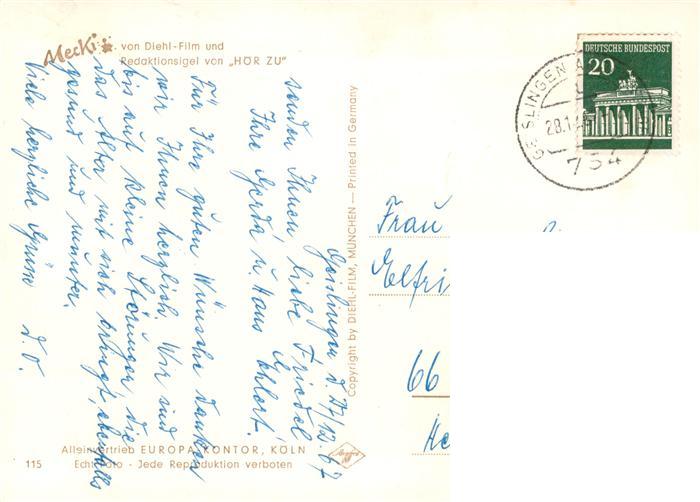 Mecki
von Diehl-Film und
Redaktionsigel von „HÖR ZU"
DEUTSCHE BUNDESPOST
20
GEISLINGEN A
28.1
734
Geislingen d. 27/12.67
Für Ihre guten Wünsche danken
wir Ihnen herzlich. Wir sind
bis auf kleine Störungen die
das Alter mit sich bringt, ebenfalls
gesund und munter.
Viele herzliche Grüße d. O.
senden Ihnen liebe Friedel
Ihre Gerda u. Hans Ehlert.
Copyright by DIEHL-FILM, MÜNCHEN — Printed in Germany
Frau
Elfri
66
Alleinvertrieb EUROPA-KONTOR, KÖLN
115 Echt Foto - Jede Reproduktion verboten